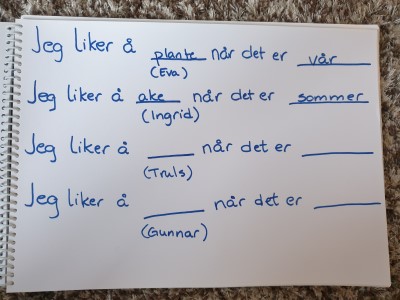 Jeg liker å plante når det er vår
(Eva)
Jeg liker å ake når det er sommer
(Ingrid)
Jeg liker å ____ når det er ____
(Truls)
Jeg liker å ____ når det er ____
(Gunnar)